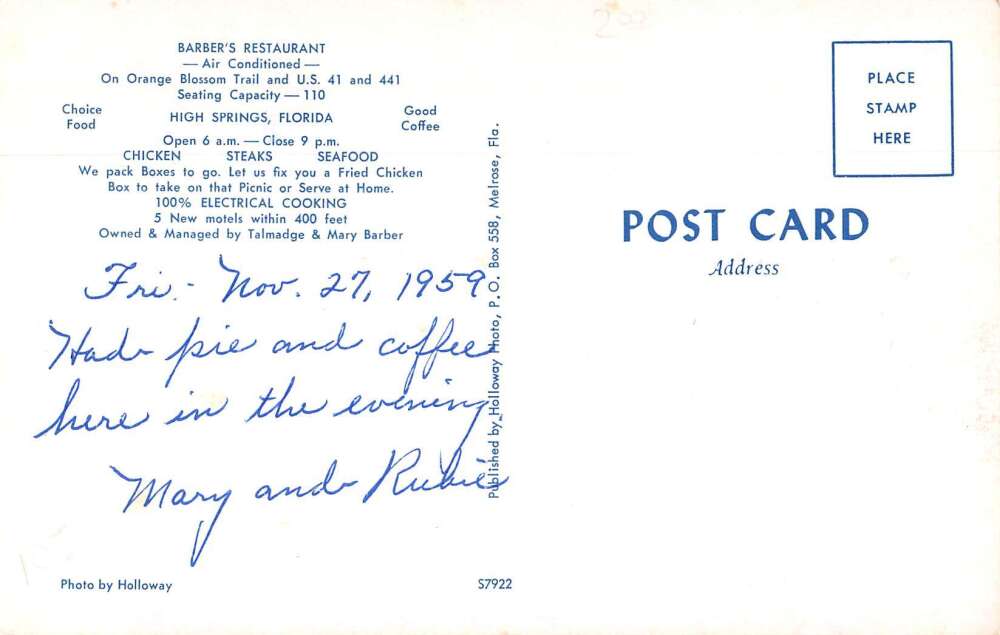 BARBER'S RESTAURANT
— Air Conditioned —
On Orange Blossom Trail and U.S. 41 and 441
Seating Capacity — 110
Choice Food
HIGH SPRINGS, FLORIDA
Good Coffee
Open 6 a.m. — Close 9 p.m.
CHICKEN STEAKS SEAFOOD
We pack Boxes to go. Let us fix you a Fried Chicken
Box to take on that Picnic or Serve at Home.
100% ELECTRICAL COOKING
5 New motels within 400 feet
Owned & Managed by Talmadge & Mary Barber
Fri.- Nov. 27, 1959
Had pie and coffee
here in the evening
Mary and Rubie
Photo by Holloway
S7922
Published by Holloway Photo, P.O. Box 558, Melrose, Fla.
PLACE
STAMP
HERE
POST CARD
Address